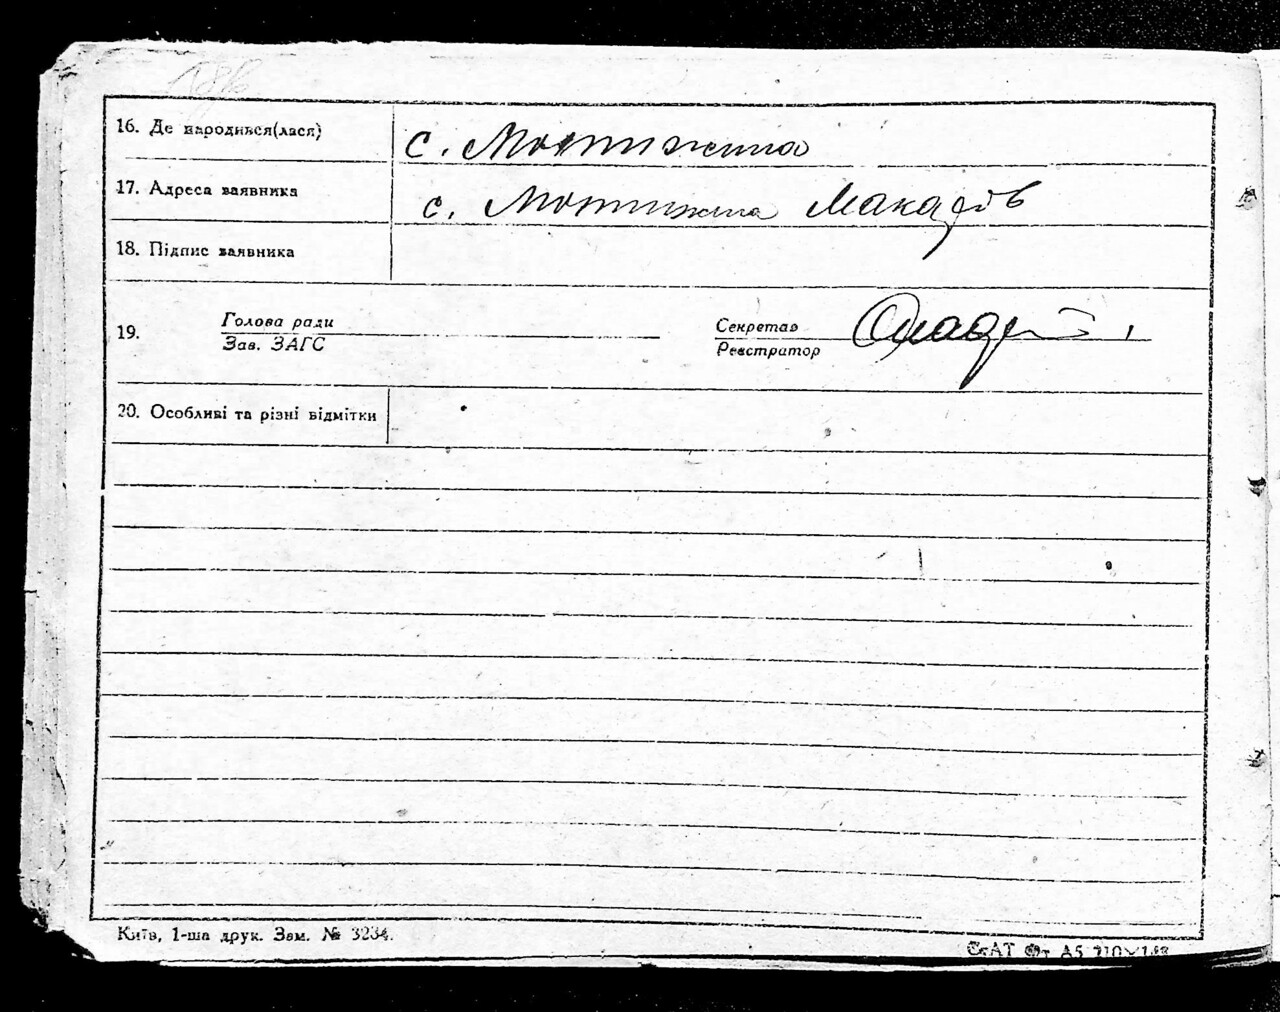 16. Де народився(лася) с. Мотижина
17. Адреса заявника с. Мотижина Макарів
18. Підпис заявника
19. Голова ради Секретар
Зав. ЗАГС Реєстратор
20. Особливі та різні відмітки
Київ, 1-ша друк. Зам. № 3234.
СтАТ Фт А5 210×148